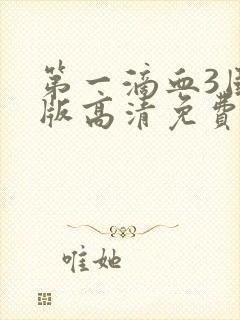 第一滴血3
版高清免费
唯她